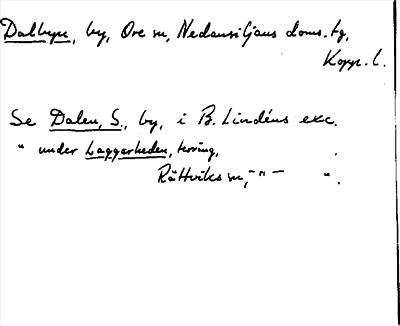 Dalbyn, by, Ore sn, Nedansiljans doms. tg,
Kopp. l.
Se Dalen, S., by, i B. Lindéns exc.
" under Laggarheden, terräng, .
Rättviks sn, -"- ".